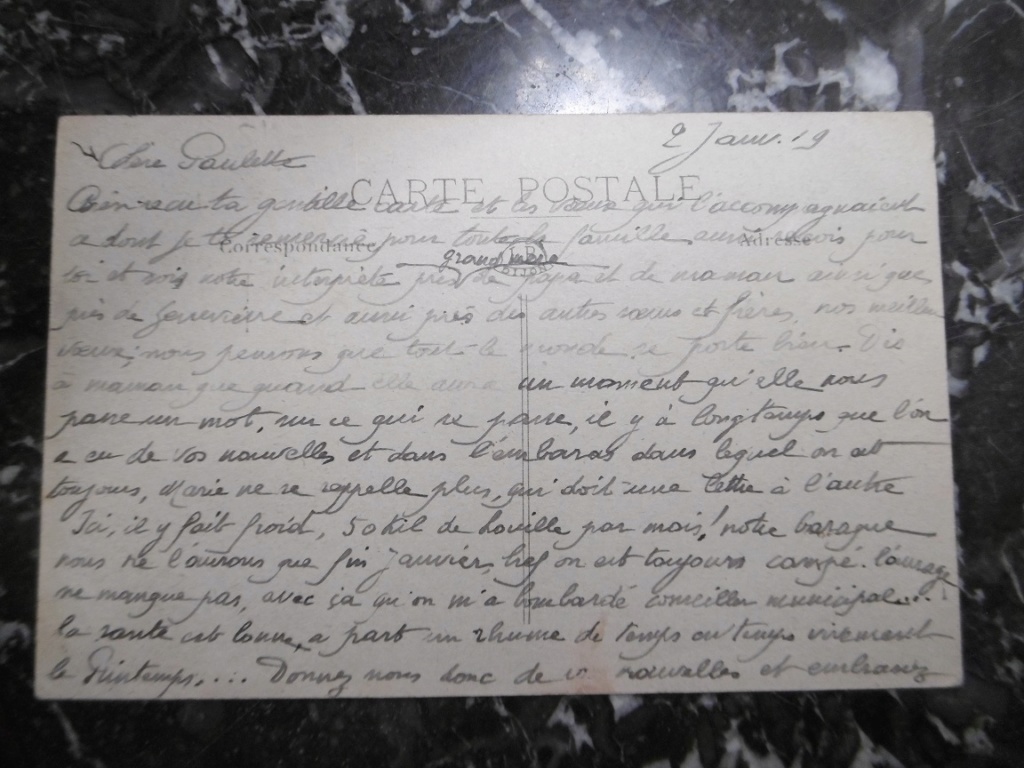 2 Janv. 19
Chère Paulette
CARTE POSTALE
Bien reçu ta gentille carte et les vœux qui l'accompagnaient
Correspondance
Adresse
a dont je te remercie pour toute la famille aussi sois pour
grand mère
toi et sois notre interprète près de papa et de maman ainsi que
près de Geneviève et aussi près des autres sœurs et frères, nos meilleurs
vœux, nous pensons que tout le monde se porte bien. Dis
à maman que quand elle aura un moment qu'elle nous
passe un mot, sur ce qui se passe, il y à longtemps que l'on
a eu de vos nouvelles et dans l'embaras dans lequel on est
toujours, Marie ne se rappelle plus, qui doit une lettre à l'autre
Ici, il y fait froid, 50 kil de houille par mois! notre baraque
nous ne l'aurons que fin janvier, bref on est toujours campé. l'ouvrage
ne manque pas, avec ça qu'on m'a bombardé conseiller municipal...
la santé est bonne, a part un rhume de temps en temps vivement
le Printemps.... Donnez nous donc de vos nouvelles et embrassez